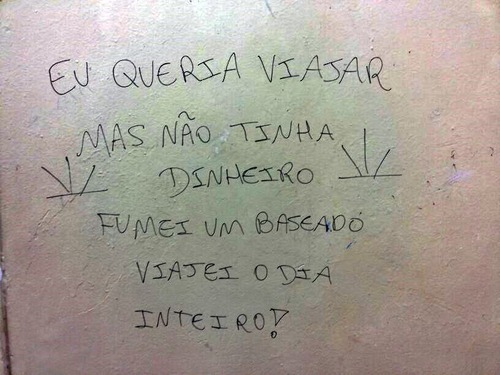 EU QUERIA VIAJAR
MAS NÃO TINHA
DINHEIRO
FUMEI UM BASEADO
VIAJEI O DIA
INTEIRO!